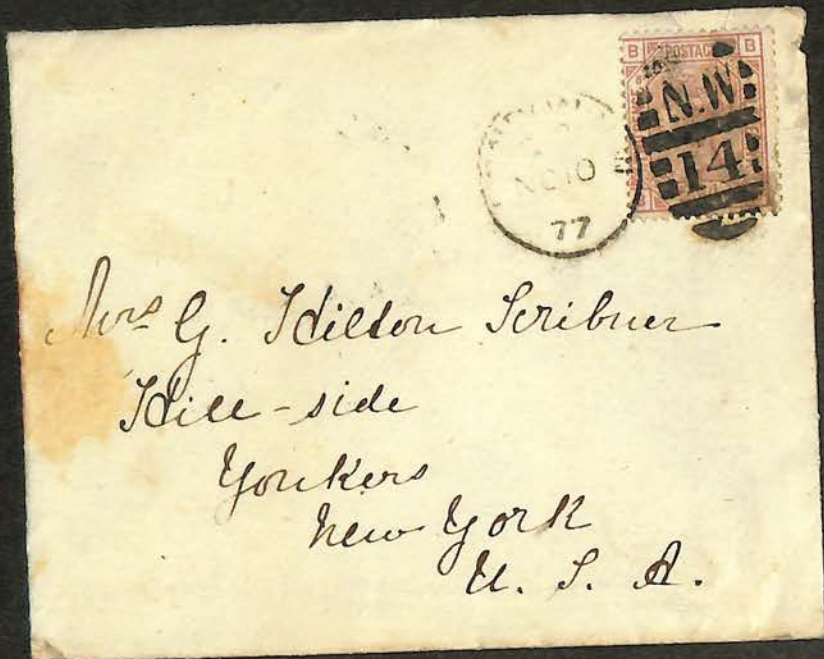 B POSTAGE B
N.W
14
NO 10
77
Mrs G. Hilton Scribner
Hill-side
Yonkers
New York
U. S. A.